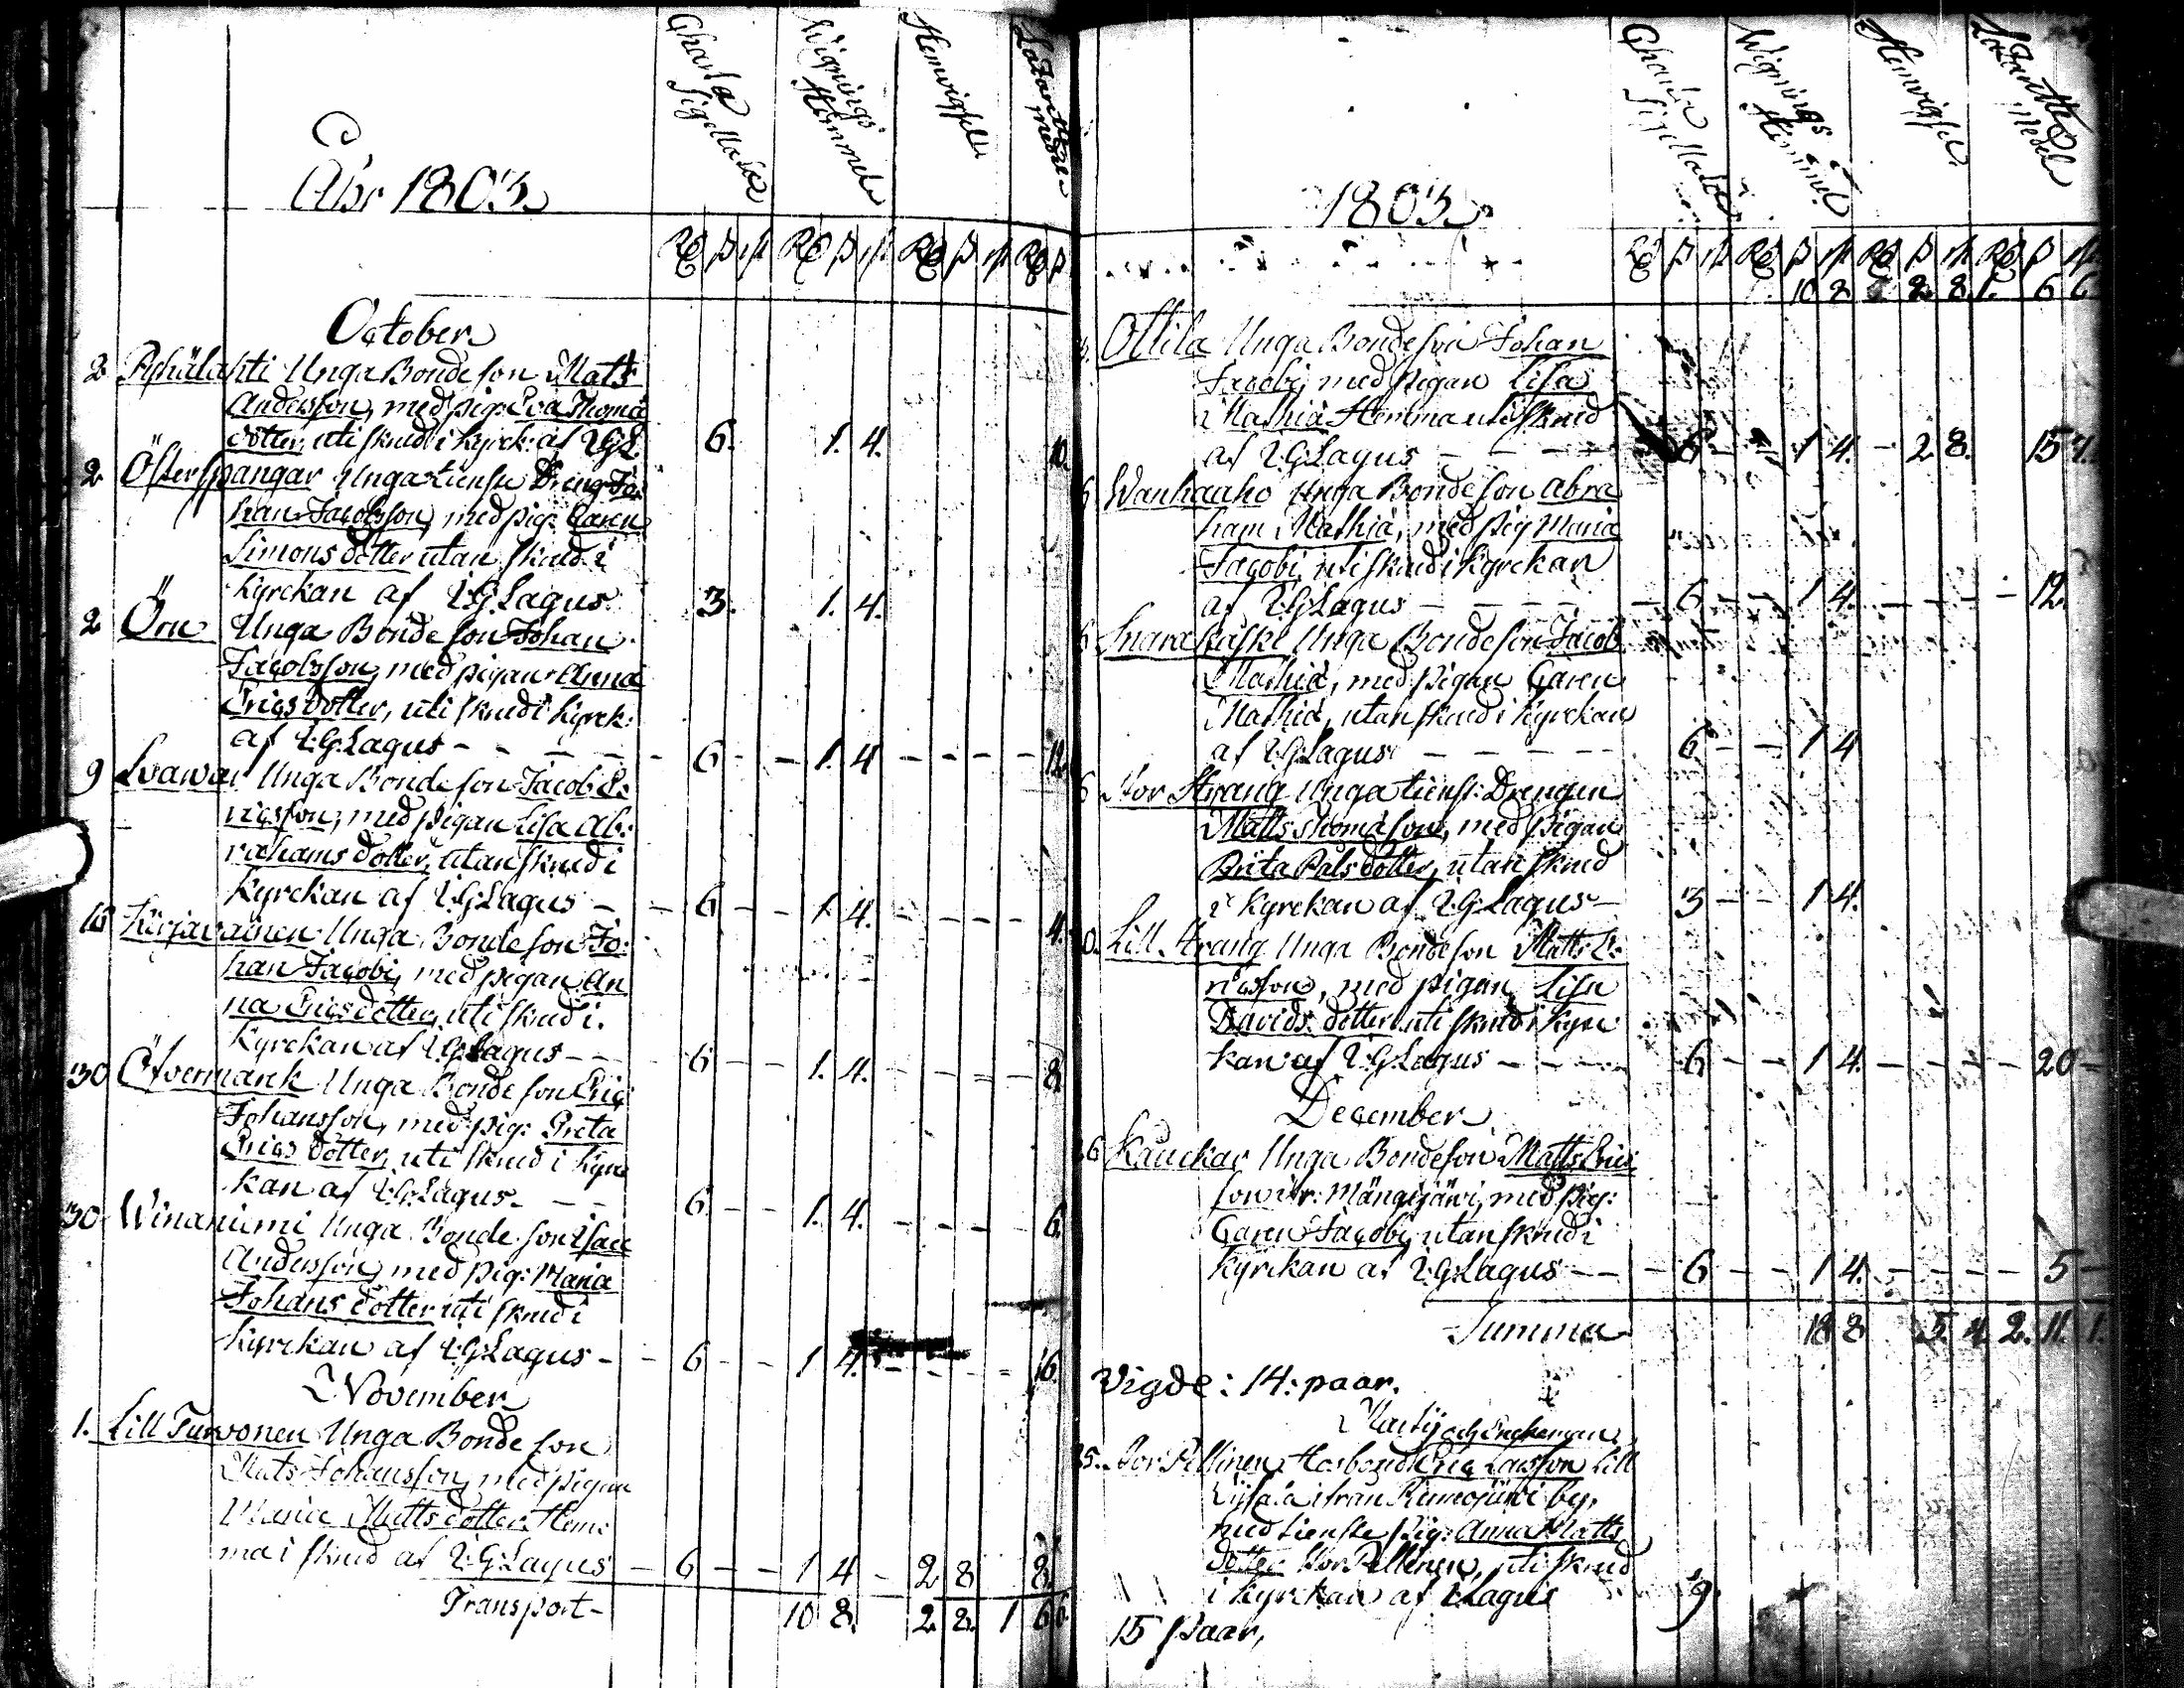 Charta Sigellata
Wignings Himmel
Hemvigsel
Lazaretts medel
Åhr 1803
Rd ß rst Rd ß rst Rd ß rst Rd ß
October
2 Unga Bonde son Mats
Andersson, med pig: Eva Thomæ
dotter, uti skrud i kyrck: af I.G.L. 6. 1. 4. 10.
2 Österspångar Unga tienste Dreng Jo
han Jacobsson, med pig: Caren
Simons dotter utan skrud i
kyrckan af I.G.Lagus 3. 1. 4.
2 Örn Unga Bonde son Johan
Jacobsson, med pigan Anna
Erics dotter, uti skrud i kyrck:
af I.G.Lagus - - - - 6 - - 1. 4 - - - - 12.
9 Svawar Unga Bonde son Jacob E:
ricsson, med pigan Lisa Ab:
rahams dotter, utan skrud i
kyrckan af I.G.Lagus - - 6 - - 1. 4. - - - - 4.
16 Kirjavainen Unga Bonde son Jo:
han Jacobi, med pigan An
na Erics dotter, uti skrud i
kyrckan af I.G.Lagus - - 6 - - 1. 4. - - - - 8.
30 Öfvermark Unga Bonde son Eric
Johansson, med pig: Greta
Erics dotter, uti skrud i kyrc
kan af I.G.Lagus - - - 6. - - 1. 4. - - - - 6.
30 Winaniemi Unga Bonde son Isac
Andersson, med pig: Maria
Johans dotter uti skrud i
kyrckan af I.G.Lagus - - 6 - - 1 4. - - - - 16
November
1. Lill Turvonen Unga Bonde son
Mats Johansson, med pigan
Maria Matts dotter, Hem:
ma i skrud af I.G.Lagus - 6 - - 1 4 - 2 8 8.
Transport - 10 8. 2. 8. 1 6 6
Charta Sigellata
Wignings Himmel
Hemvigsel
Lazaretts Medel
1803
Rd ß rst Rd ß rst Rd ß rst Rd ß rst
10 8 2. 8. 1. 6 6
Ollila Unga Bonde son Johan
Jacobi, med pigan Lisa
Mathiæ Hemma uti skrud
af I.G.Lagus - - - - 6 - - 1 4. - 2 8. 15 4.
6 Wanhaaho Unga Bonde son Abra
ham Mathiæ, med pig Maria
Jacobi, uti skrud i kyrckan
af I.G.Lagus - - - - - 6 - - 1 4. - - - - 12.
6 Snarakäski Unga Bonde son Jacob
Mathiæ, med pigan Caren
Mathiæ, utan skrud i kyrckan
af I.G.Lagus - - - - 6 - - 1 4
6 Stor Strang Unga tienst: Drengen
Matts Thomasson, med pigan
Brita Påls dotter, utan skrud
i kyrckan af I.G.Lagus - 3 - - 1 4.
0. Lill Strang Unga Bonde son Matts E:
ricsson, med pigan Lisa
Davids dotter uti skrud i kyrc
kan af I.G.Lagus - - - - 6 - - 1 4. - - - - 20 -
December
26 Kauckar Unga Bonde son Matts Erics
son ifr: Mängijärvi, med pig:
Caren Jacobi, utan skrud i
kyrckan af I.G.Lagus - - - 6 - - 1 4. - - - - 5 -
Summa 18 8 5. 4 2. 11. 1.
Vigde: 14: paar.
och Enckeman
25. Stor Pellinen Husbond Eric Larsson Lill
ifrån by,
med tienste Pig: Anna Matts
dotter Stor Pellinen, uti skrud
i kyrckan af Lagus 9.
15 Paar,